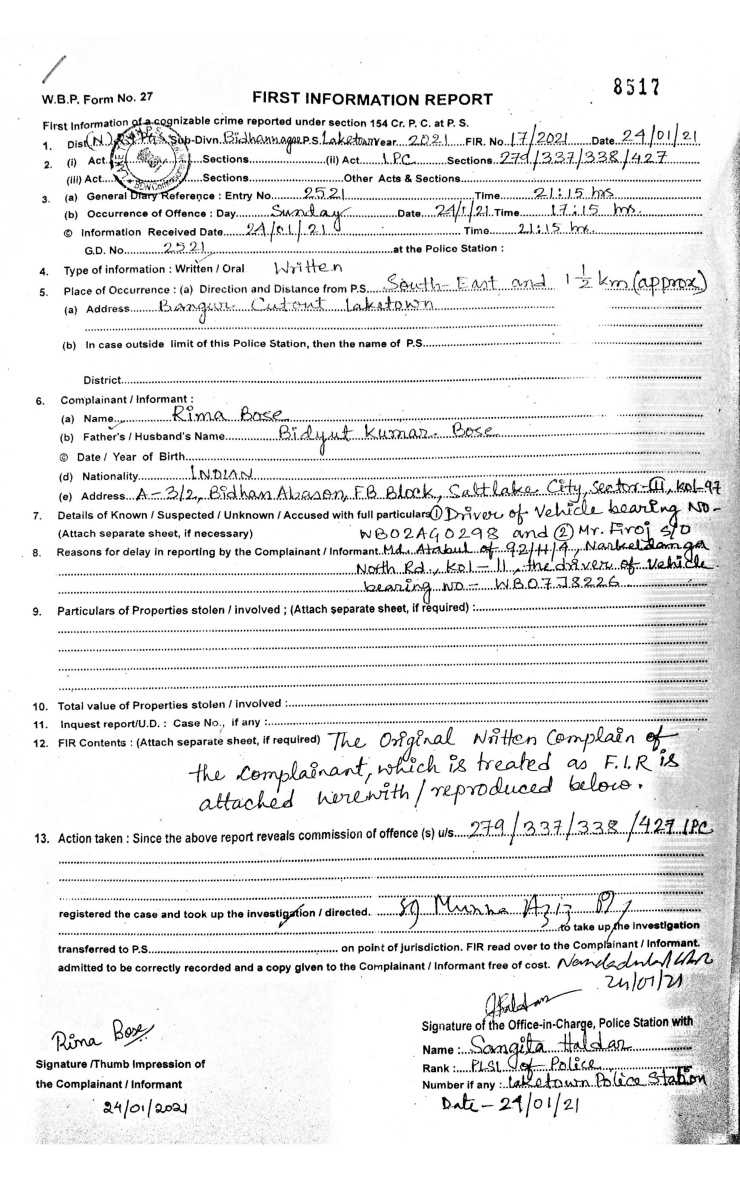 8517
W.B.P. Form No. 27 FIRST INFORMATION REPORT
First Information of a cognizable crime reported under section 154 Cr. P. C. at P. S.
1. Dist (N) 24 PGS Sub-Divn. Bidhannagar P.S. Laketown Year 2021 FIR. No 17/2021 Date 24/01/21
2. (i) Act Sections (ii) Act IPC Sections 279/337/338/427
(iii) Act Sections Other Acts & Sections
3. (a) General Diary Reference : Entry No 2521 Time 21:15 hrs
(b) Occurrence of Offence : Day Sunday Date 24/1/21 Time 17:15 hrs.
© Information Received Date 24/01/21 Time 21:15 hrs.
G.D. No 2521 at the Police Station :
4. Type of information : Written / Oral Written
5. Place of Occurrence : (a) Direction and Distance from P.S. South-East and 1 1/2 km (approx)
(a) Address Bangur Cutout Laketown
(b) In case outside limit of this Police Station, then the name of P.S
District
6. Complainant / Informant :
(a) Name Rima Bose
(b) Father's / Husband's Name Bidyut Kumar Bose
© Date / Year of Birth
(d) Nationality INDIAN
(e) Address A-3/2, Bidhan Abason, FB Block, Saltlake City, Sector-III, Kol-97
7. Details of Known / Suspected / Unknown / Accused with full particulars ① Driver of Vehicle bearing NO-
(Attach separate sheet, if necessary) WB02AG0298 and ② Mr. Firoj S/O
8. Reasons for delay in reporting by the Complainant / Informant Md. Atabul of 92/H/9, Narkeldanga
North Rd., Kol-11, the driver of Vehicle
bearing NO- WB07J8226
9. Particulars of Properties stolen / involved ; (Attach separate sheet, if required) :
10. Total value of Properties stolen / involved :
11. Inquest report/U.D. : Case No., if any :
12. FIR Contents : (Attach separate sheet, if required) The Original Written Complain of
the complainant, which is treated as F.I.R is
attached herewith / reproduced below.
13. Action taken : Since the above report reveals commission of offence (s) u/s 279/337/338/427 IPC
registered the case and took up the investigation / directed. SI Munna Aziz
to take up the investigation
transferred to P.S on point of jurisdiction. FIR read over to the Complainant / Informant.
admitted to be correctly recorded and a copy given to the Complainant / Informant free of cost.
24/01/21
Signature of the Office-in-Charge, Police Station with
Rima Bose
Name : Sangita Haldar
Signature /Thumb Impression of
Rank : PLSI of Police
the Complainant / Informant
Number if any : Laketown Police Station
24/01/2021
Date - 24/01/21